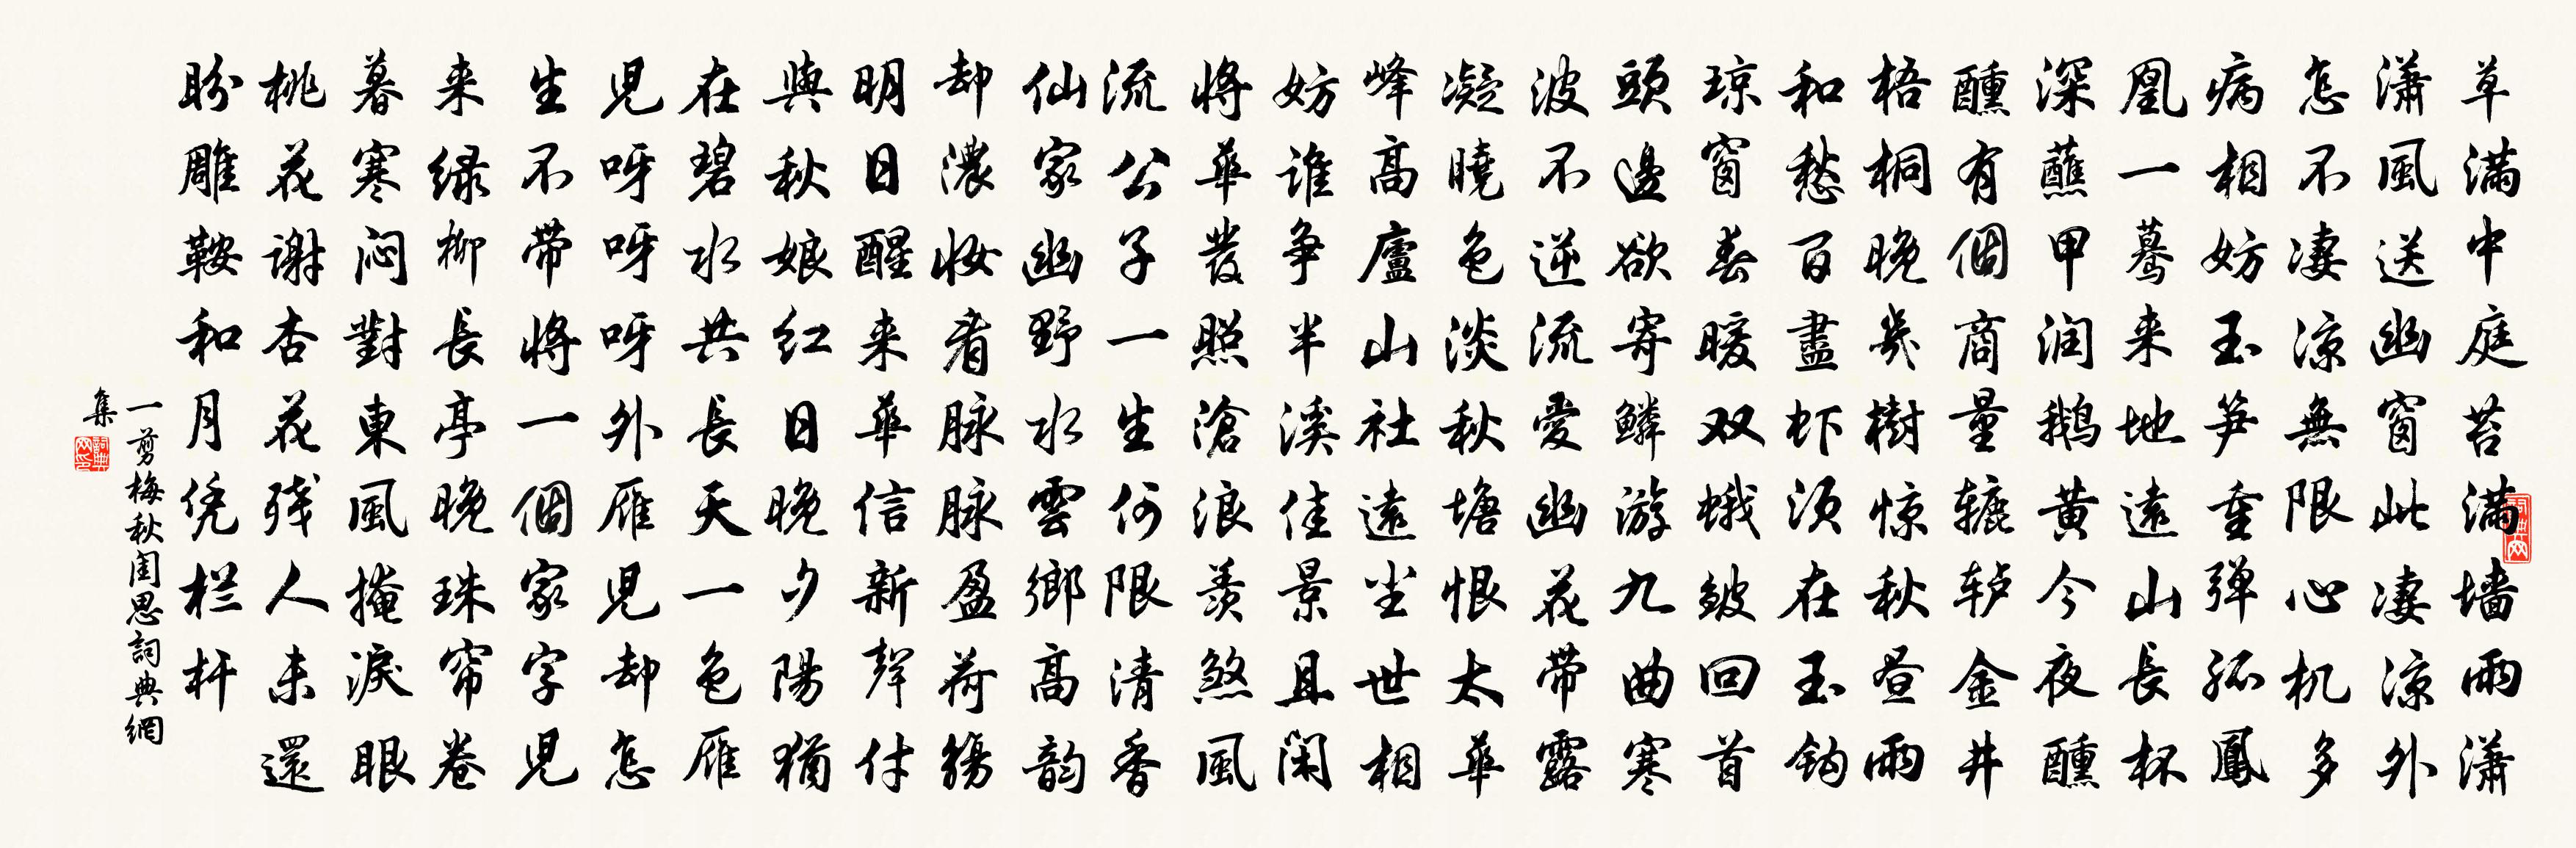 草满中庭苔满墙雨潇
潇風送幽窗此凄涼外
怎不凄凉無限心机多
病相妨玉笋重弹孤鳳
凰一蓦来地遠山長杯
深蘸甲润鹅黄今夜醺
醺有個商量辘轳金井
梧桐晚幾樹惊秋昼雨
和愁百盡虾须在玉钩
琼窗春暖双蛾皱回首
頭邊欲寄鳞游九曲寒
波不逆流愛幽花带露
凝曉色淡秋塘恨太華
峰高廬山社遠尘世相
妨谁争半溪佳景且闲
将華發照滄浪羡煞風
流公子一生何限清香
仙家幽野水雲鄉高韵
却濃妆看脉脉盈荷觞
明日醒来華信新聲付
與秋娘红日晚夕陽犹
在碧水共長天一色雁
児呀呀呀外雁児却怎
生不带将一個家字児
来绿柳長亭晚珠帘卷
暮寒闷對東風掩淚眼
桃花谢杏花残人未還
盼雕鞍和月凭栏杆
一剪梅秋闺思詞典網
集